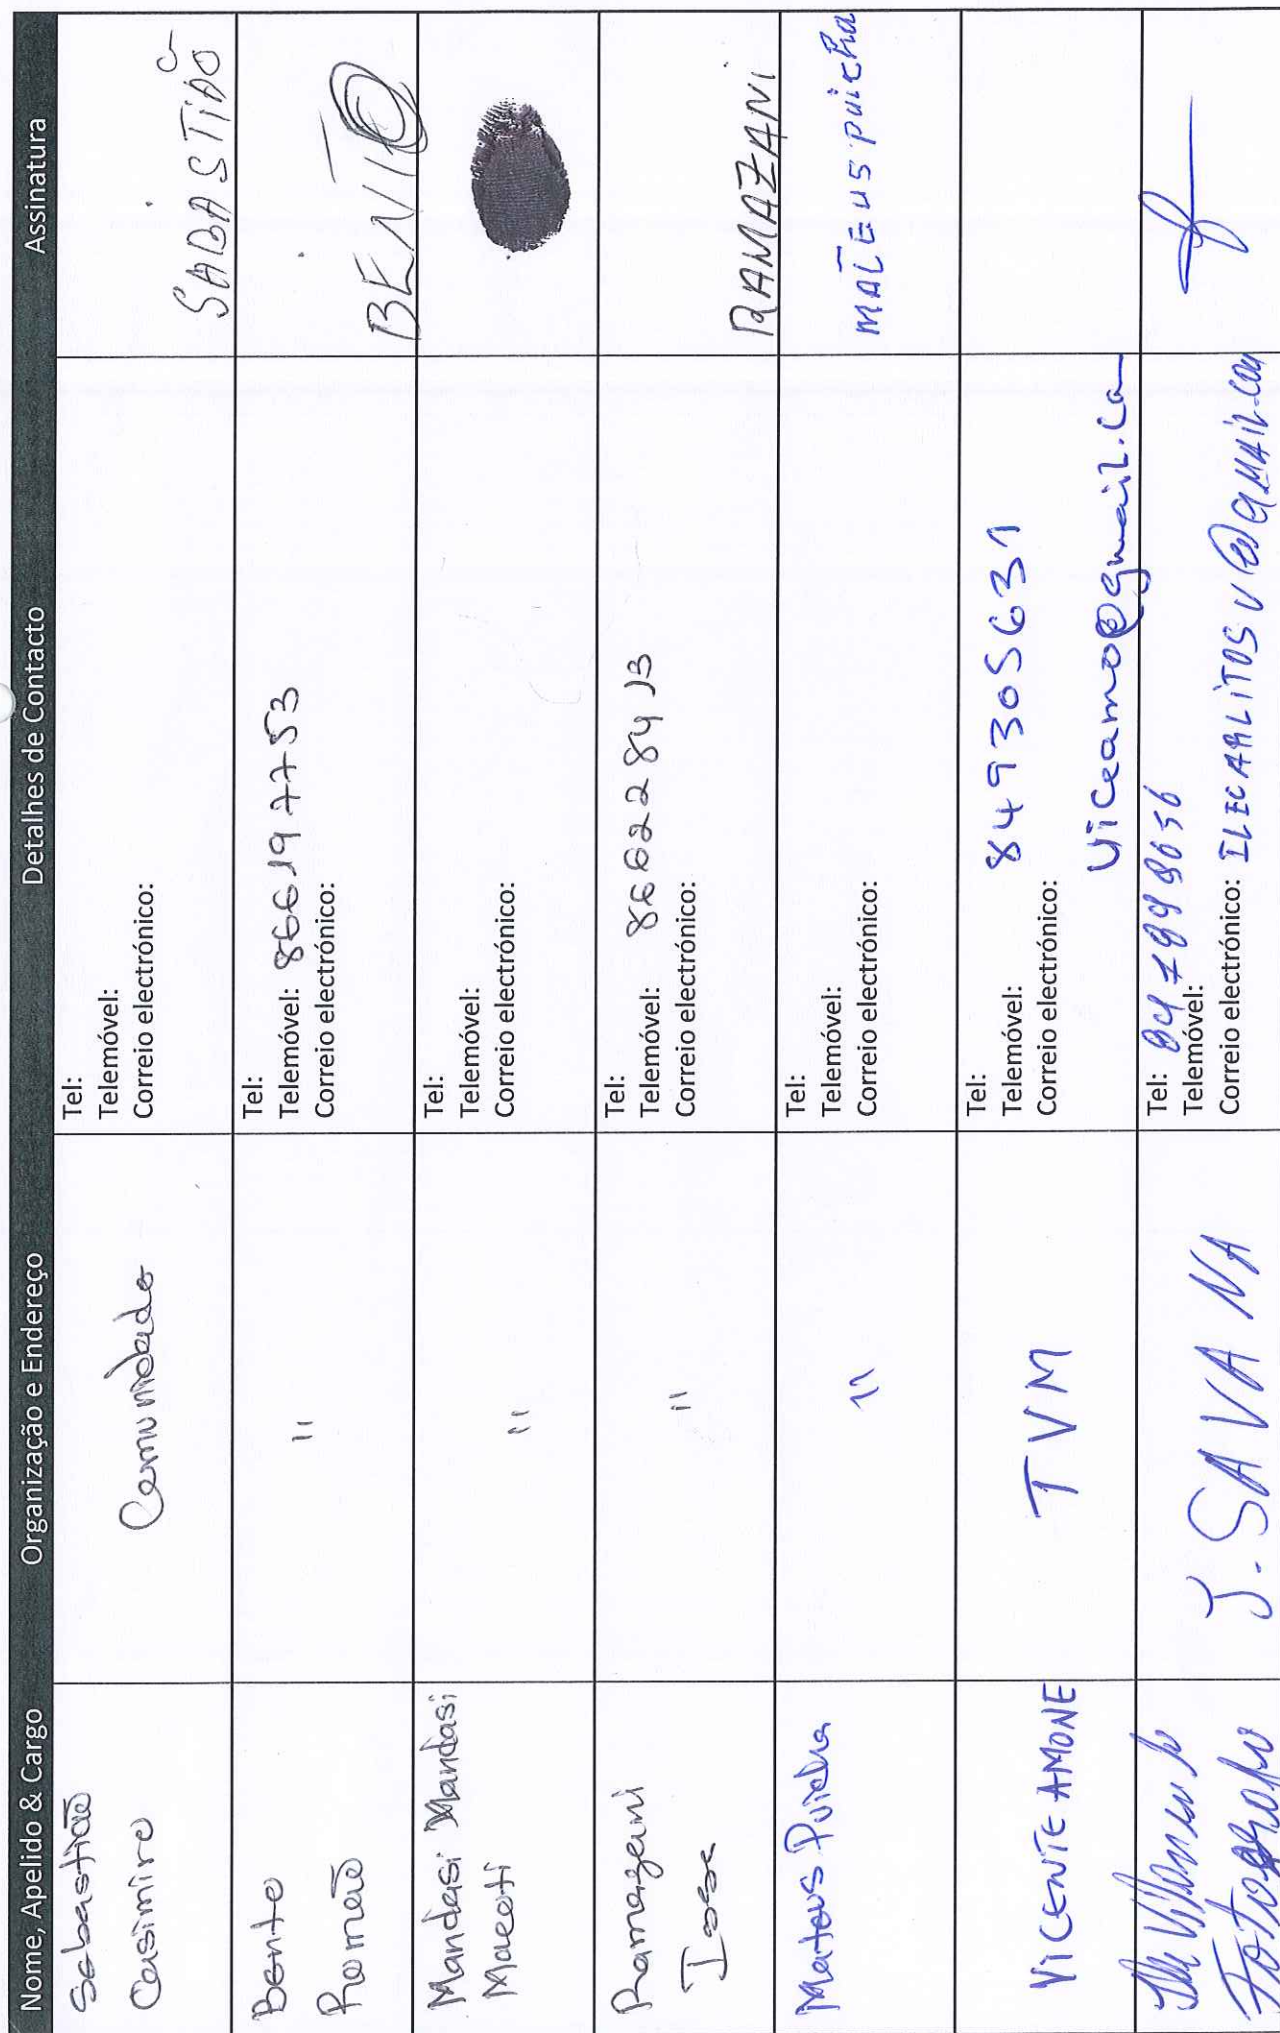 Nome, Apelido & Cargo Organização e Endereço Detalhes de Contacto Assinatura
Sebastião
Casimiro
Comunidade
Tel:
Telemóvel:
Correio electrónico:
SABASTIÃO
Bento
Romão
"
Tel:
Telemóvel: 866197753
Correio electrónico:
BENTO
Mandasi Mandasi
"
Tel:
Telemóvel:
Correio electrónico:
Ramazani
"
Tel:
Telemóvel: 866228413
Correio electrónico:
RAMAZANI
Mateus Puicha
"
Tel:
Telemóvel:
Correio electrónico:
MATEUS puicha
VICENTE AMONE
TVM
Tel:
Telemóvel: 849305631
Correio electrónico:
viceamo@gmail.co
Fotografo
J. SAVANA
Tel:
Telemóvel:
Correio electrónico: